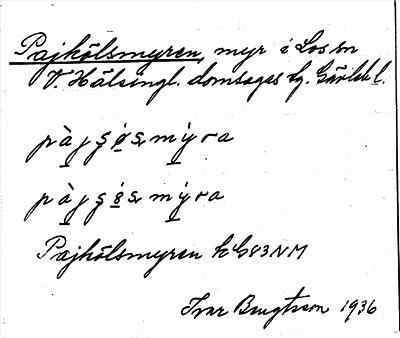 Pajkölsmyren, myr i Los sn
V. Hälsingl. domsagas tg. Gävleb. l.
pàjsøsmy̆ra
pàjsösmýra
Pajkölsmyren k G83NM
Ivar Bengtsson 1936